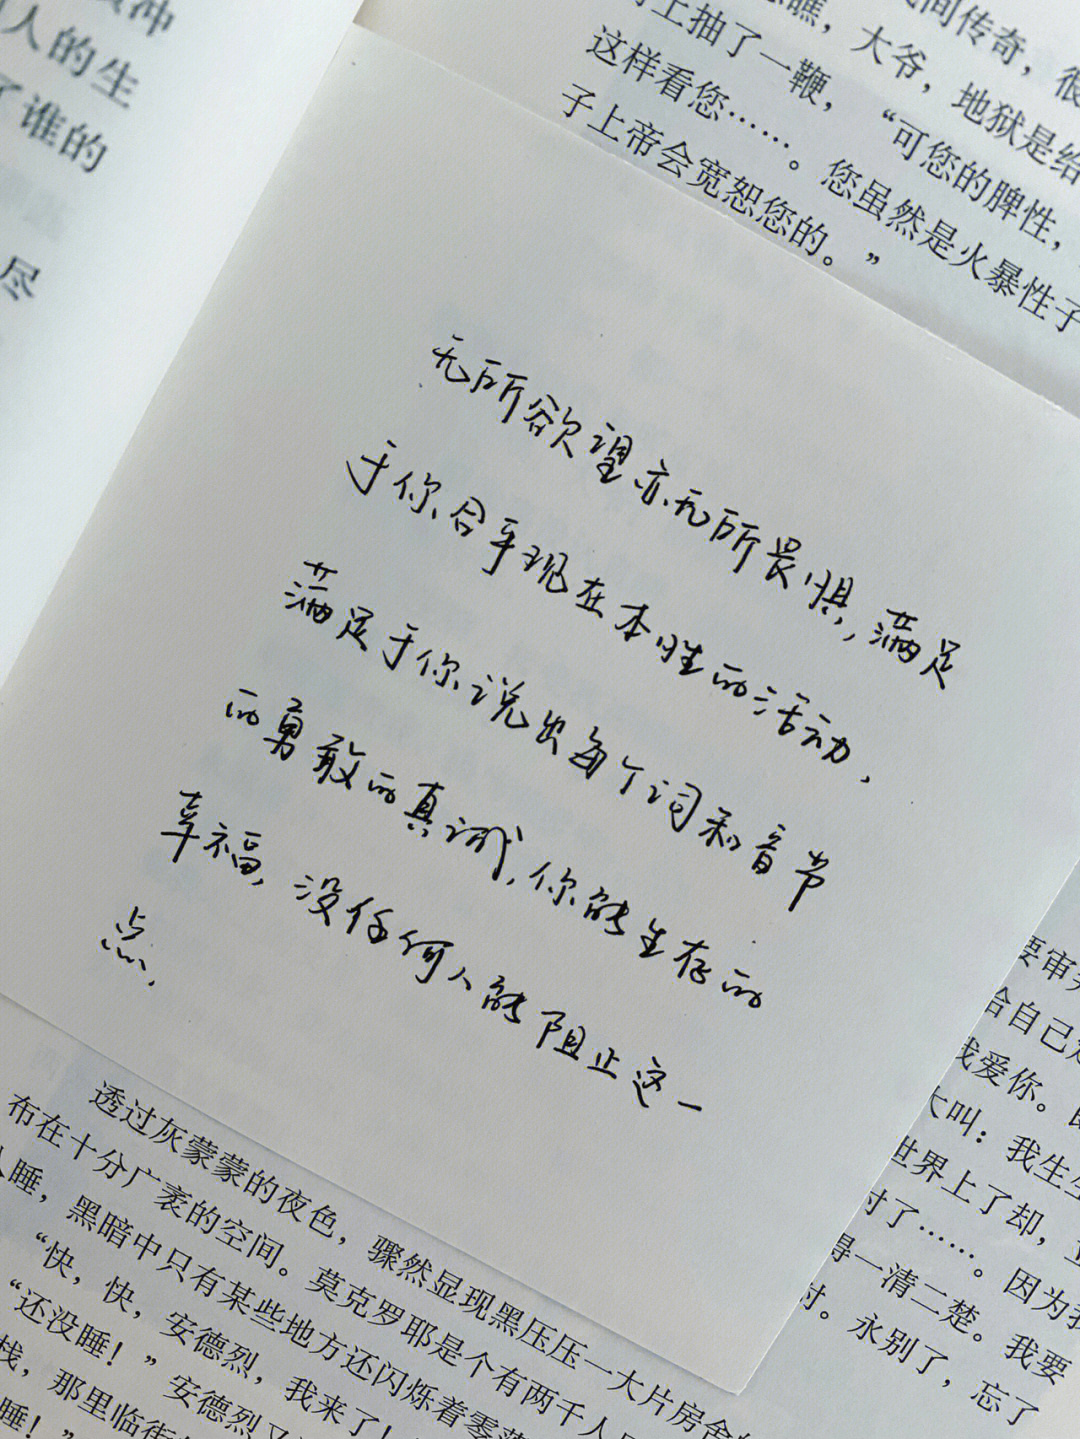 冲
人的生
了谁的
尽
间传奇，很
瞧，大爷，地狱是给
上抽了一鞭，“可您的脾性，
这样看您……。您虽然是火暴性子
子上帝会宽恕您的。”
无所欲望亦无所畏惧，满足
于你合乎现在本性的活动，
满足于你说出每个词和音节
的勇敢的真诚，你能生存的
幸福，没任何人能阻止这一
点，
要审判
给自己定
我爱你。
大叫：我生生
世界上了却，
讨了……。因为我
得一清二楚。我要
讨。永别了，忘了
透过灰蒙蒙的夜色，骤然显现黑压压一大片房舍
布在十分广袤的空间。莫克罗耶是个有两千人
睡，黑暗中只有某些地方还闪烁着零落
“快，快，安德烈，我来了！
“还没睡！”安德烈又
栈，那里临街
睡！”